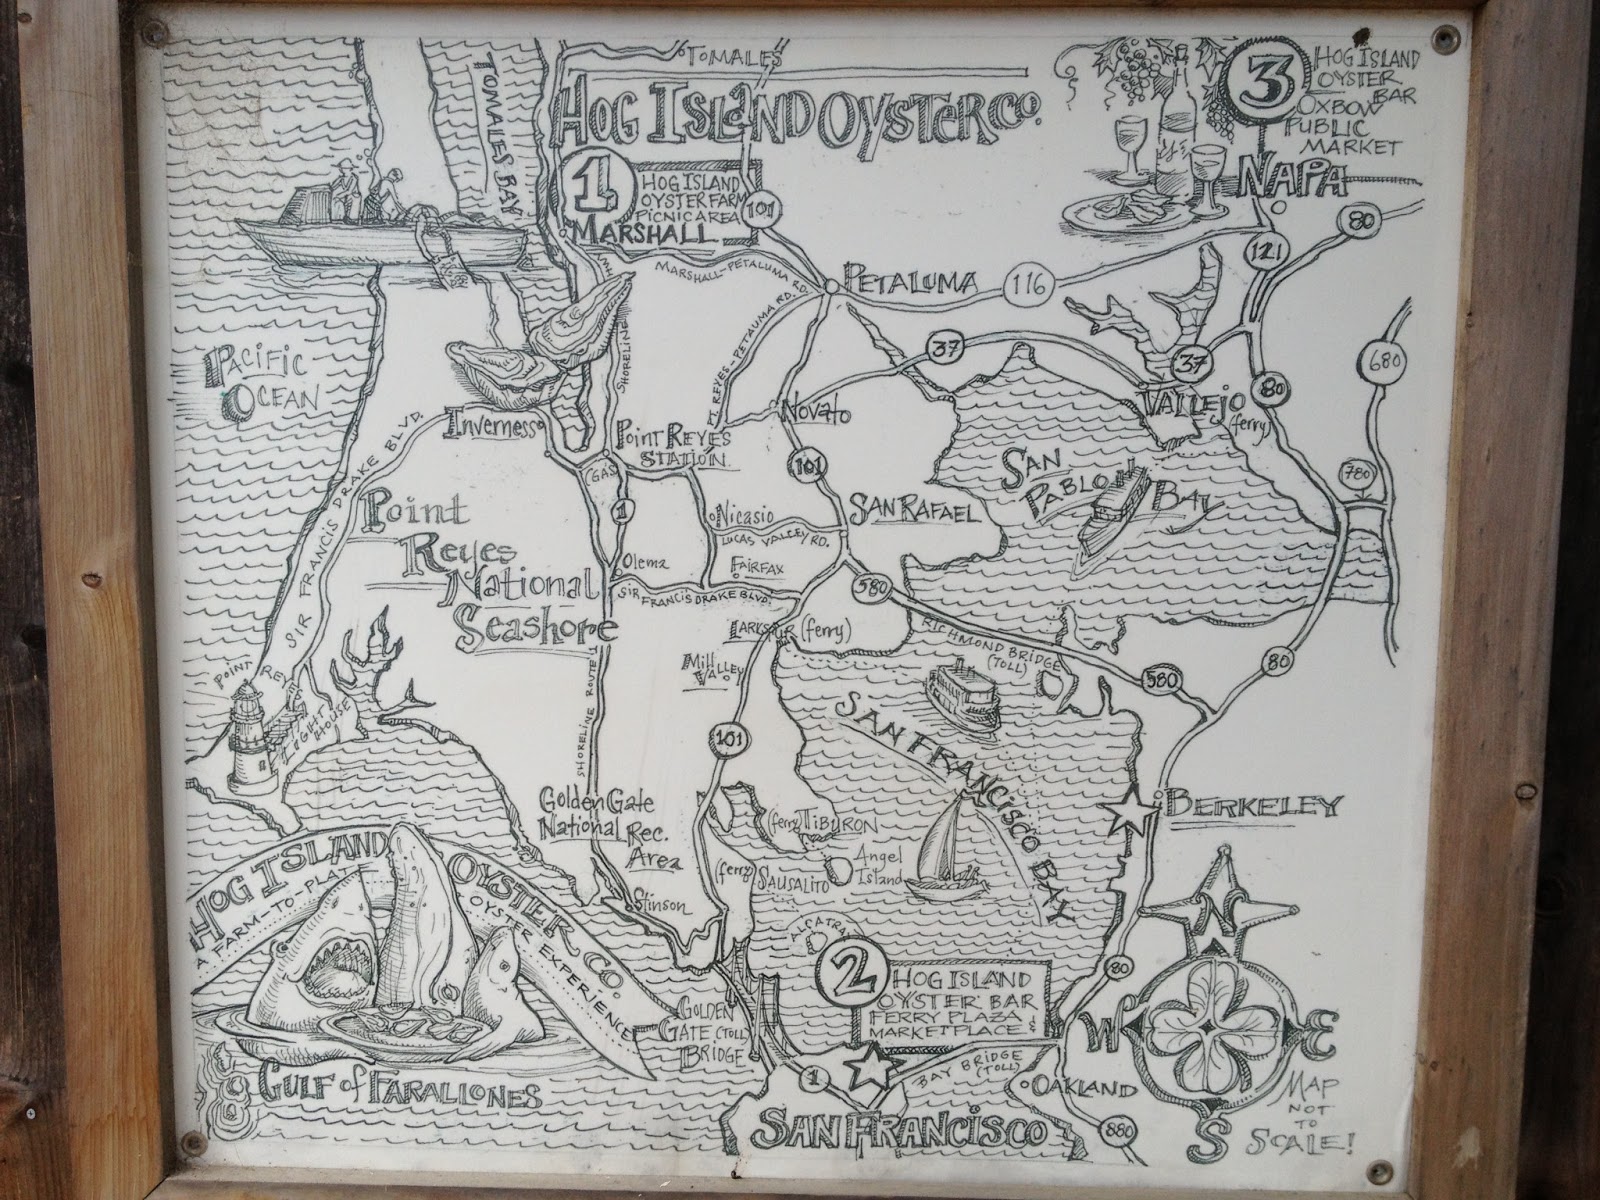 TOMALES
TOMALES BAY
HOG ISLAND OYSTER CO.
1
HOG ISLAND
OYSTER FARM
PICNIC AREA
MARSHALL
101
3
HOG ISLAND
OYSTER
BAR
OXBOW
PUBLIC
MARKET
NAPA
80
121
MARSHALL-PETALUMA RD.
PETALUMA
116
PT. REYES-PETALUMA RD.
SHORELINE
37
37
80
680
VALLEJO
(ferry)
PACIFIC
OCEAN
SIR FRANCIS DRAKE BLVD.
Inverness
POINT REYES
STATION
GAS
Novato
101
SAN
PABLO
BAY
780
Point
Reyes
National
Seashore
1
Nicasio
LUCAS VALLEY RD.
SAN RAFAEL
Olema
FAIRFAX
SIR FRANCIS DRAKE BLVD.
580
LARKSPUR (ferry)
RICHMOND BRIDGE
(TOLL)
580
80
Mill
Valley
POINT REYES
LIGHT
HOUSE
SHORELINE ROUTE 1
101
SAN FRANCISCO BAY
Golden Gate
National Rec.
Area
(ferry) TIBURON
BERKELEY
(ferry) SAUSALITO
Angel
Island
Stinson
ALCATRAZ
HOG ISLAND OYSTER CO.
A FARM-TO-PLATE OYSTER EXPERIENCE
2
HOG ISLAND
OYSTER BAR
FERRY PLAZA
MARKETPLACE
80
GOLDEN
GATE (TOLL)
BRIDGE
GULF of FARALLONES
1
BAY BRIDGE
(TOLL)
OAKLAND
880
SAN FRANCISCO
N
W
E
S
MAP
NOT
TO
SCALE!